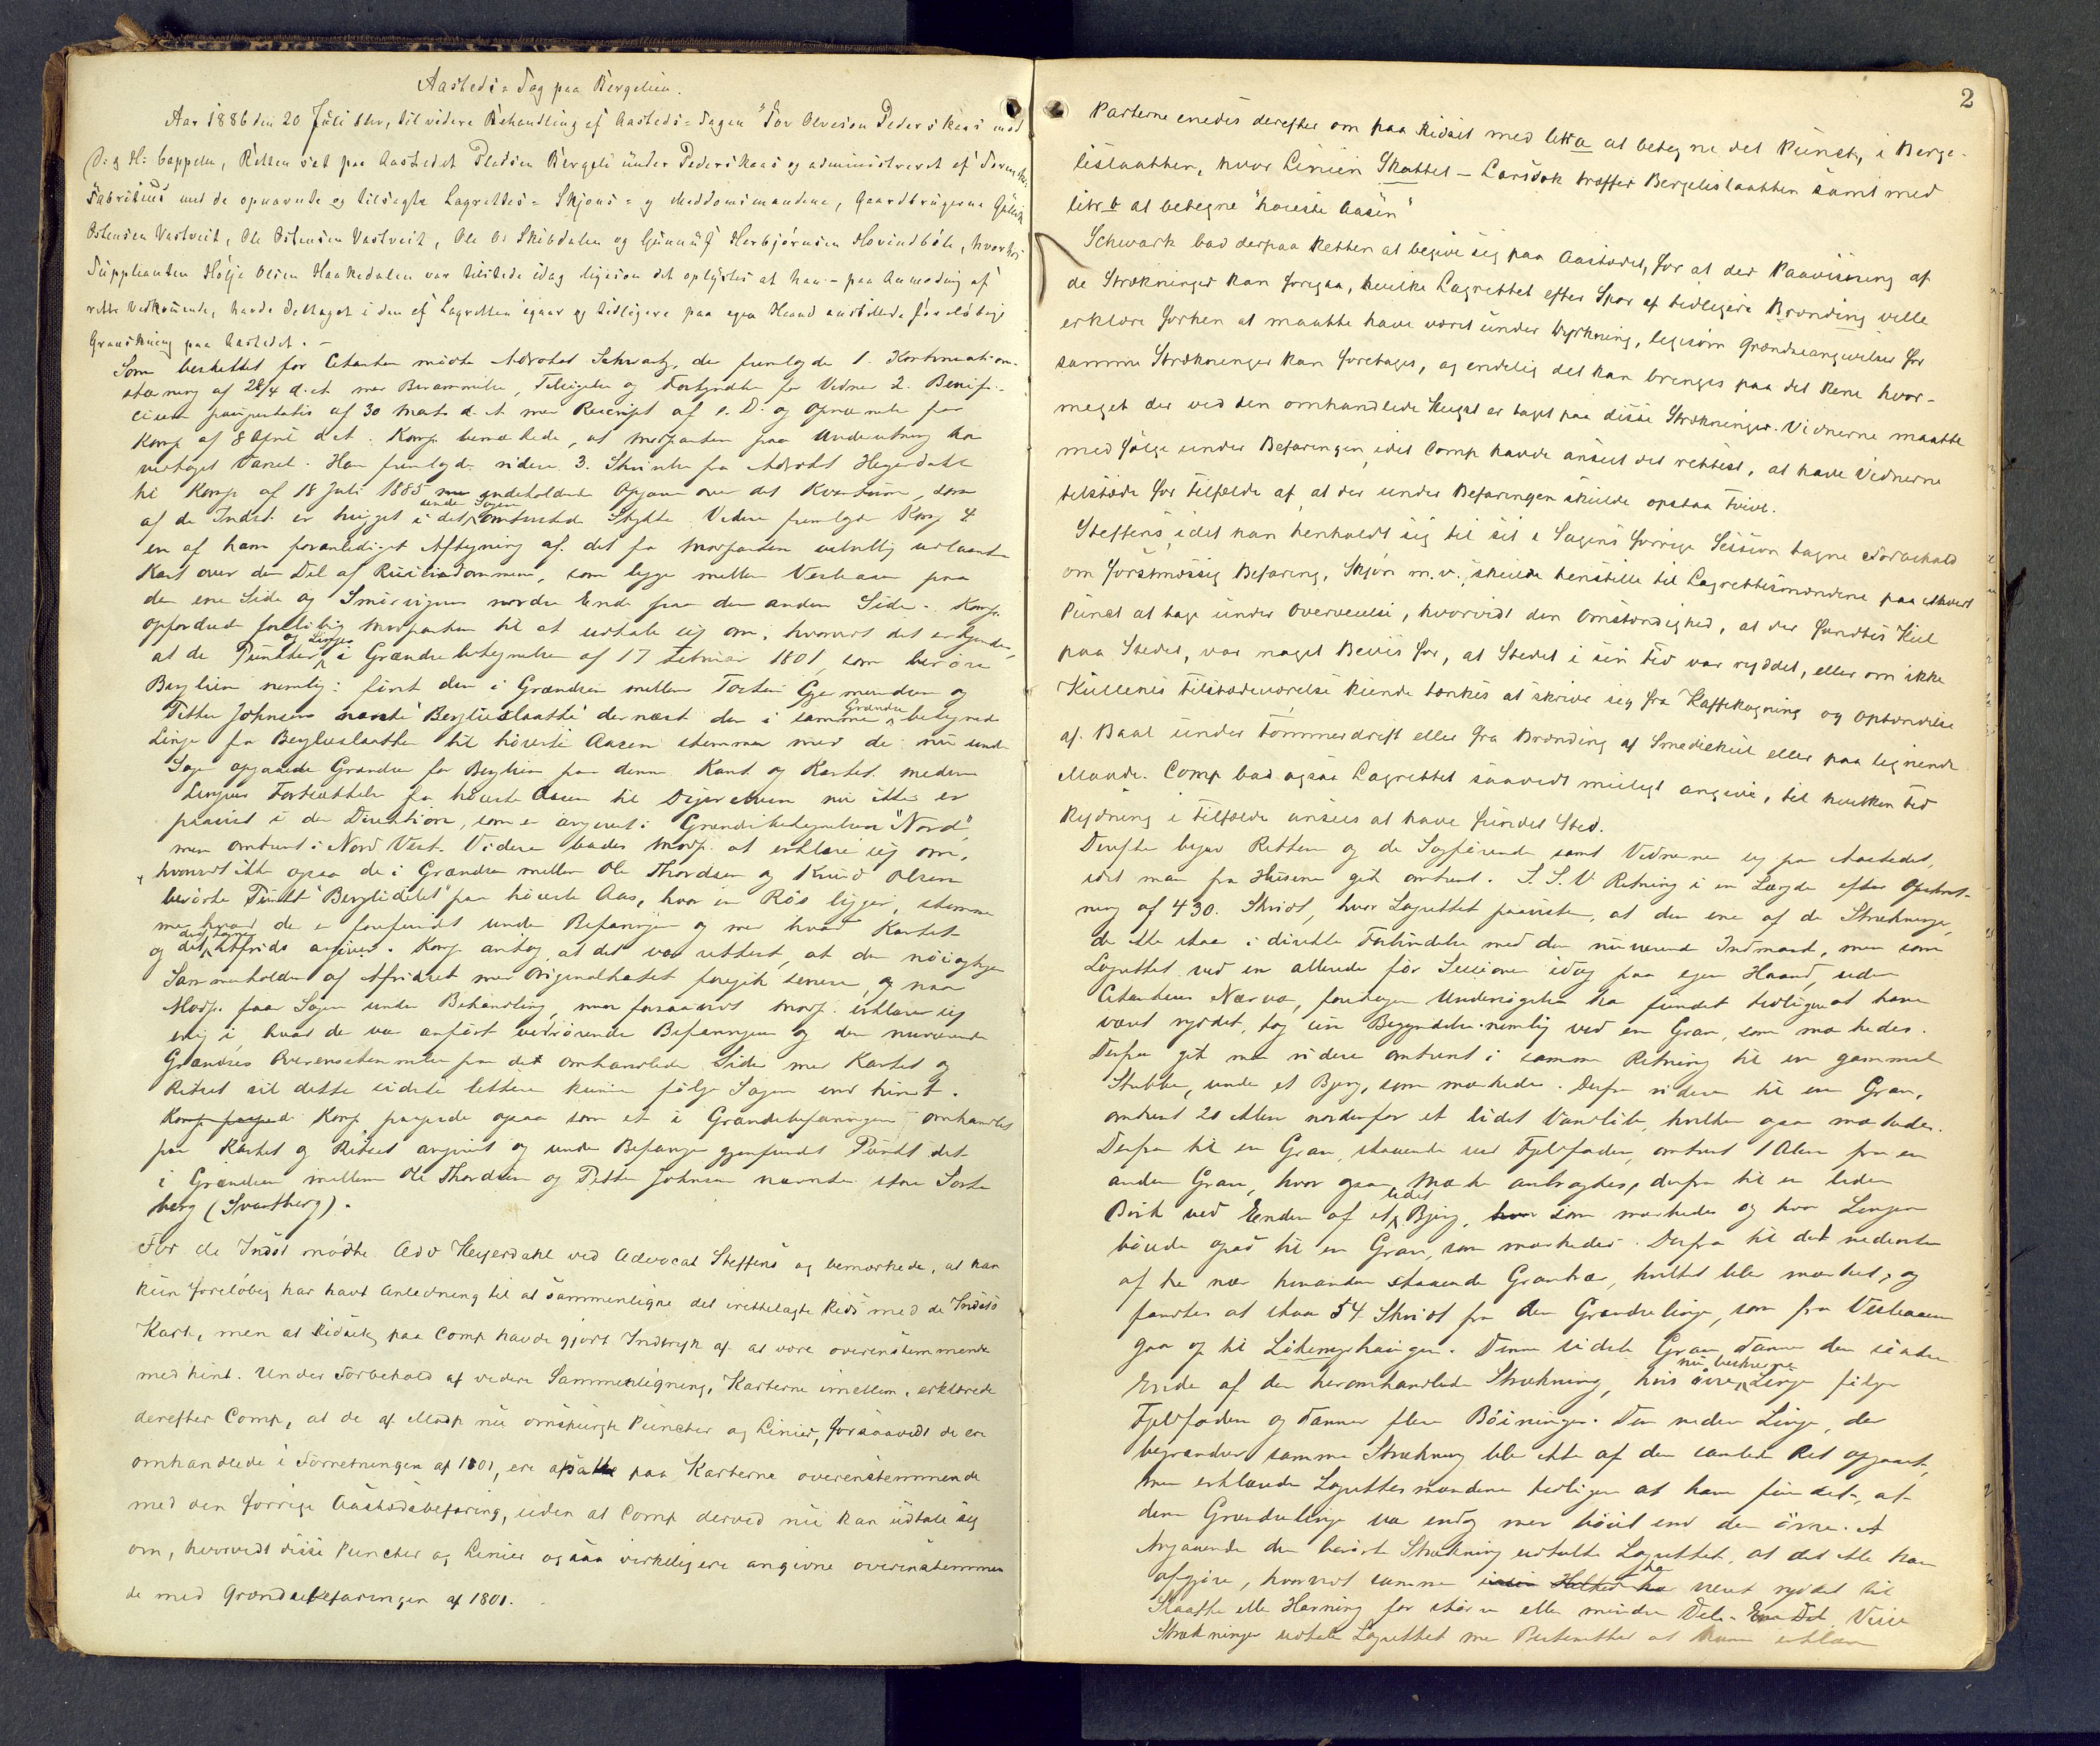 Aasteds-Sag paa Bergelien.
Aar 1886 den 20 Juli blev, til videre Behandling af Aasteds-Sagen "Tov Olveson Pederskaas mod
D: & H: Cappelen, Retten sat paa Aastedet Pladsen Bergeli under Pederskaas og administreret af Sorenskr.
Fabritius med de opnævnte og tilsagte Lagrettes- Skjøns- og Meddomsmændene, Gaardbrugerne
Østensen Vastveit, Ole Østensen Vastveit, Ole Skibdalen og Gunnuf Herbjørnsen Hovindbøle, hvorhos
Supplianten Hølje Olsen Haakedalen var tilstede idag ligesom det oplystes at han - paa Anmodning af
rette Vedkommende, havde deltaget i den af Lagretten igaar og tidligere paa egen Haand anstillede foreløbige
Granskning paa Aastedet. -
Som beskikket for Citanten mødte Advokat Schwartz, der fremlagde 1. Kontinuations-
stævning af 28/4 d. A. med Berammelse, Tilsigelse og Forkyndelse for Vidner 2. Benifi-
cium paupertatis af 30 Marts d. A. med Rescript af s. D. og Opnævnelse for
Komp. af 8 April d. A. Komp. bemærkede, at Modparten paa Anledning har
vedtaget Varsel. Han fremlagde videre 3. Skrivelse fra Advokat Heyerdahl
til Komp. af 18 Juli 1885 indeholdende Opgave over det Kvantum, som
af de Indst. er hugget i det under Sagen omtvistede Stykke. Videre fremlagde Komp. 4
en af ham foranlediget Aftegning af det fra Modparten velvillig udlaante
Kart over den Del af , som ligger mellem Vesleaasen paa
den ene Side og nordre Ende paa den anden Side. Komp.
opfordrede foreløbig Modparten til at udtale sig om, hvorvidt det erkjendes,
at de Punkter og Linjer i Grændsebetegnelsen af 17 Februar 1801, som berøre
Berglien nemlig: først den i Grændsen mellem Torsten Gjermundsen og
Petter Johnsen nævnte "Berglieslaatte" dernæst den i samme Grændse betegnede
Linje fra Berglieslaatten til høieste Aasen stemmer med de nu under
Sagen opgaaede Grændser for Berglien paa denne Kant og Kartet medens
Linjens Fortsættelse fra høieste Aasen til nu ikke er
paavist i den Direktion, som er angivet i Grændsebetegnelsen "Nord",
men omtrent i Nord Vest. Videre bades Modp. at erklære sig om,
hvorvidt ikke ogsaa de i Grændsen mellem Ole Thordsen og Knud Olsen
berørte Punkt "Berglidelet" paa høieste Aas, hvor en Røs ligger, stemmer
med hvad der er forefundet under Befaringen og med hvad Kartet
og det deraf tagne Afrids angiver. Komp. antog, at det var rettest, at den nøiagtige
Sammenholden af Afridset med Originalkartet foregik senere, og naar
Modp. faar Sagen under Behandling, men forsaavidt Modp. erklærer sig
enig i, hvad der var anført vedrørende Befaringen og den nuværende
Grændses Overensstemmelse paa det omhandlede Side med Kartet og
Ridset vil dette sidste lettere kunne følge Sagen end hint.
Komp. paapegede ogsaa som et i Grændsebefaringen omhandlet
paa Kartet og Ridset angivet og under Befaringen gjenfundet Punkt det
i Grændsen mellem Ole Thordsen og Petter Johnsen nævnte store Sorte
berg (Svartberg).
For de Indst mødte Adv Heyerdahl ved Advocat Steffens og bemærkede, at han
kun foreløbig har havt Anledning til at sammenligne det irettelagte Rids med de Indsts
Kart, men at Ridset paa Comp havde gjort Indtryk af at være overensstemmende
med hint. Under Forbehold af videre Sammenligning, Karterne imellem, erklærede
derefter Comp, at de af Modp nu omspurgte Puncter og Linier, forsaavidt de ere
omhandlede i Forretningen af 1801, ere afsatte paa Karterne overensstemmende
med den forrige Aastedsbefaring, uden at Comp derved nu kan udtale sig
om, hvorvidt disse Puncter og Linier ogsaa virkelig ere angivne overensstemmen
de med Grændsebefaringen af 1801.
2
Parterne enedes derefter om paa Ridset med litr a at betegne det Punct, i Berge-
lislaatten, hvor Linien Skattet - Larsdok træffer Bergelislaatten samt med
litr b at betegne "høieste Aasen"
Schwartz bad derpaa Retten at begive sig paa Aastedet, for at der Paavisning af
de Strækninger kan foregaa, hvilke Lagrettet efter Spor af tidligere Brænding ville
erklære forhen at maatte have været under Dyrkning, ligesom Grændseangivelser for
samme Strækninger kan foretages, og endelig det kan bringes paa det Rene hvor-
meget der ved den omhandlede Hugst er taget paa disse Strækninger. Vidnerne maatte
medfølge under Befaringen, idet Comp havde anseet det rettest, at have Vidnerne
tilstede for Tilfælde af, at der under Befaringen skulde opstaa Tvivl.
Steffens, idet han henholdt sig til sit i Sagens forrige Session tagne Forbehold
om forstmæssig Befaring, Skjøn m.v., skulde henstille til Lagrettesmændene paa ethvert
Punct at tage under Overveielse, hvorvidt den Omstændighed, at der fandtes Kul
paa Stedet, var noget Bevis for, at Stedet i sin Tid var ryddet, eller om ikke
Kullenes Tilstedeværelse kunde tænkes at skrive sig fra Kaffekogning og Optændelse
af Baal under Tømmerdrift eller fra Brænding af Smediekul eller paa lignende
Maade. Comp bad ogsaa Lagrettet saavidt muligt angive, til hvilken Tid
Rydning i Tilfælde ansees at have fundet Sted.
Derefter begav Retten og de Sagførende samt Vidnerne sig paa Aastedet,
idet man fra Husene gik omtrent S. S. V. Retning i en Længde efter Opskridt-
ning af 430 Skridt, hvor Lagrettet paaviste, at den ene af de Strækninger,
der ikke staar i direkte Forbindelse med den nuværende Indmark, men som
Lagrettet ved en allerede før Sessionen idag paa egen Haand, uden
Citantens Nærvær, foretagen Undersøgelse har fundet tidligere at have
været ryddet, tog sin Begyndelse nemlig ved en Gran, som mærkedes.
Derfra gik man videre omtrent i samme Retning til en gammel
Stubbe, under et Bjerg, som mærkedes. Derfra videre til en Gran,
omtrent 20 Alen nordenfor et lidet Vand, hvilken ogsaa mærkedes.
Derfra til en Gran, staaende ved Fjeldfoden, omtrent 1 Alen fra en
anden Gran, hvor ogsaa Mærke anbragtes, derfra til en liden
Birk ved Enden af et lidet Bjerg, som mærkedes og hvor Linjen
bøiede opad til en Gran, som mærkedes. Derfra til det nederste
af tre nær hinanden staaende Grantrær, hvilket blev mærket, og
fandtes at staa 54 Skridt fra den Grændselinje, som fra Vesleaasen
gaar op til . Denne sidste Gran danner den søndre
Ende af den heromhandlede Strækning, hvis øvre nu beskrevne Linje følger
Fjeldfoden og danner flere Bøininger. Den nedre Linje, der
begrændser samme Strækning blev ikke af den samlede Ret opgaaet,
men erklærede Lagrettesmændene tidligere at have fundet, at
denne Grændselinje var endog mer bøiet end den øvre.
Angaaende den berørte Strækning udtalte Lagrettet, at det ikke kan
afgjøre, hvorvidt samme har været ryddet til
Slaatte eller Havning for større eller mindre Dele. Visse
Strækninger udtalte Lagrettet med Bestemthed at kunne erklære